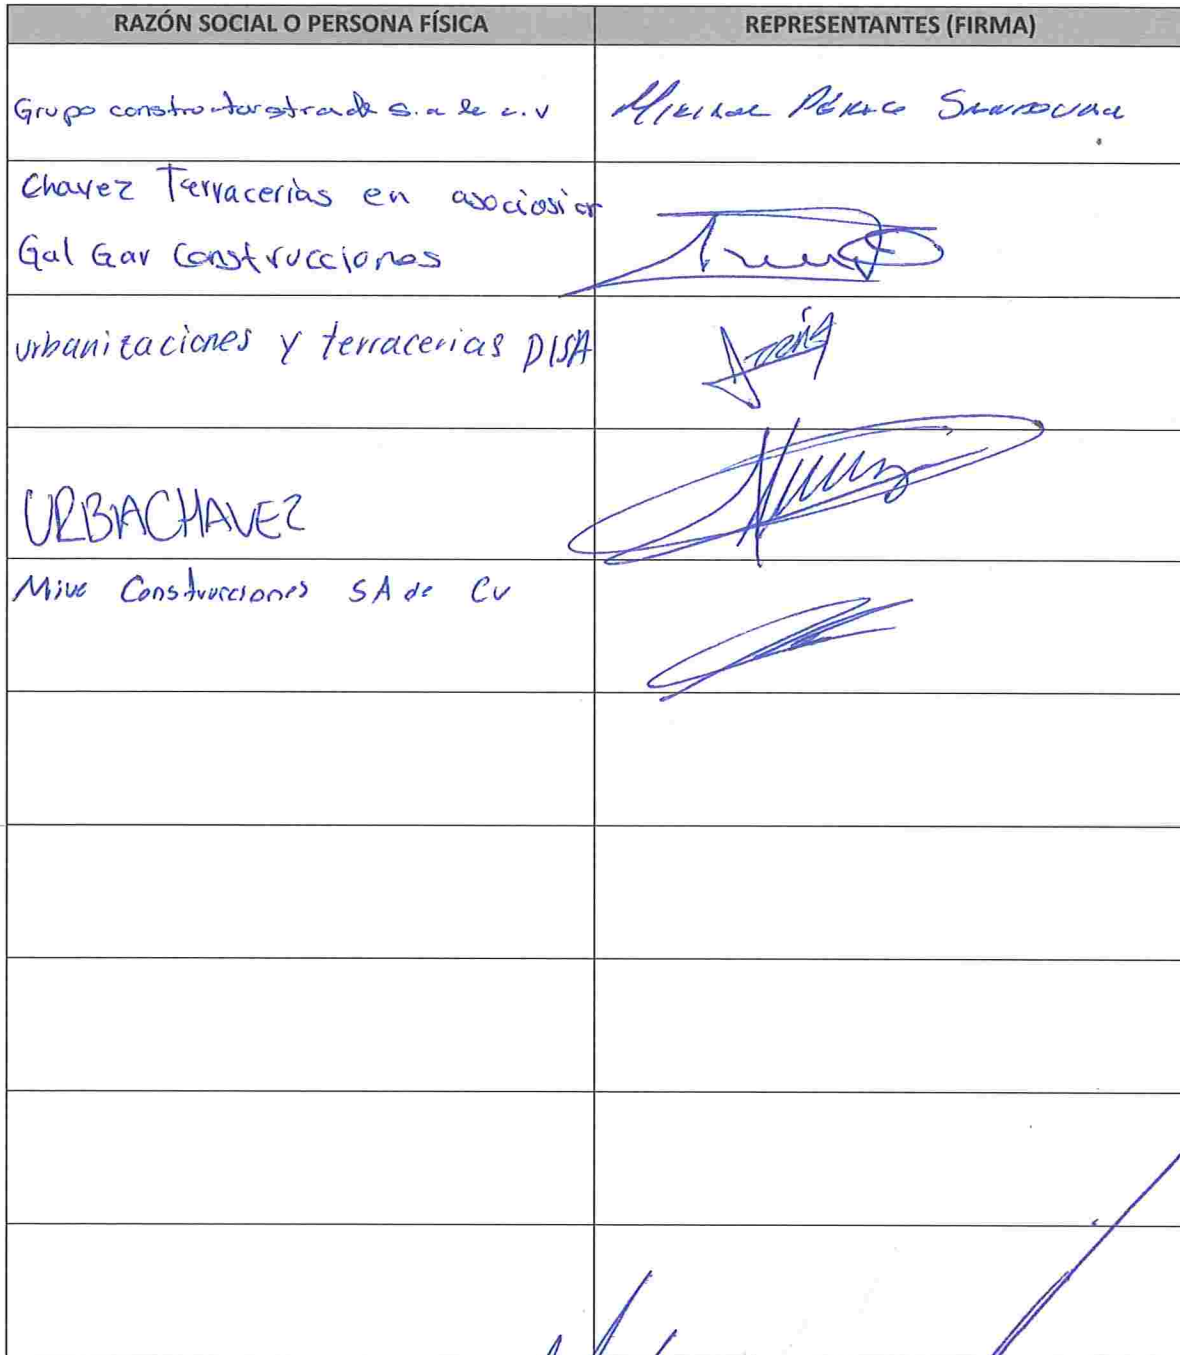 RAZÓN SOCIAL O PERSONA FÍSICA REPRESENTANTES (FIRMA)
Grupo s.a de c.v Pérez Sandoval
Chavez Terracerías en asociosion
Gal Gar Construcciones
urbanizaciones y terracerias DISA
URBIACHAVEZ
Mive Construcciones SA de Cv